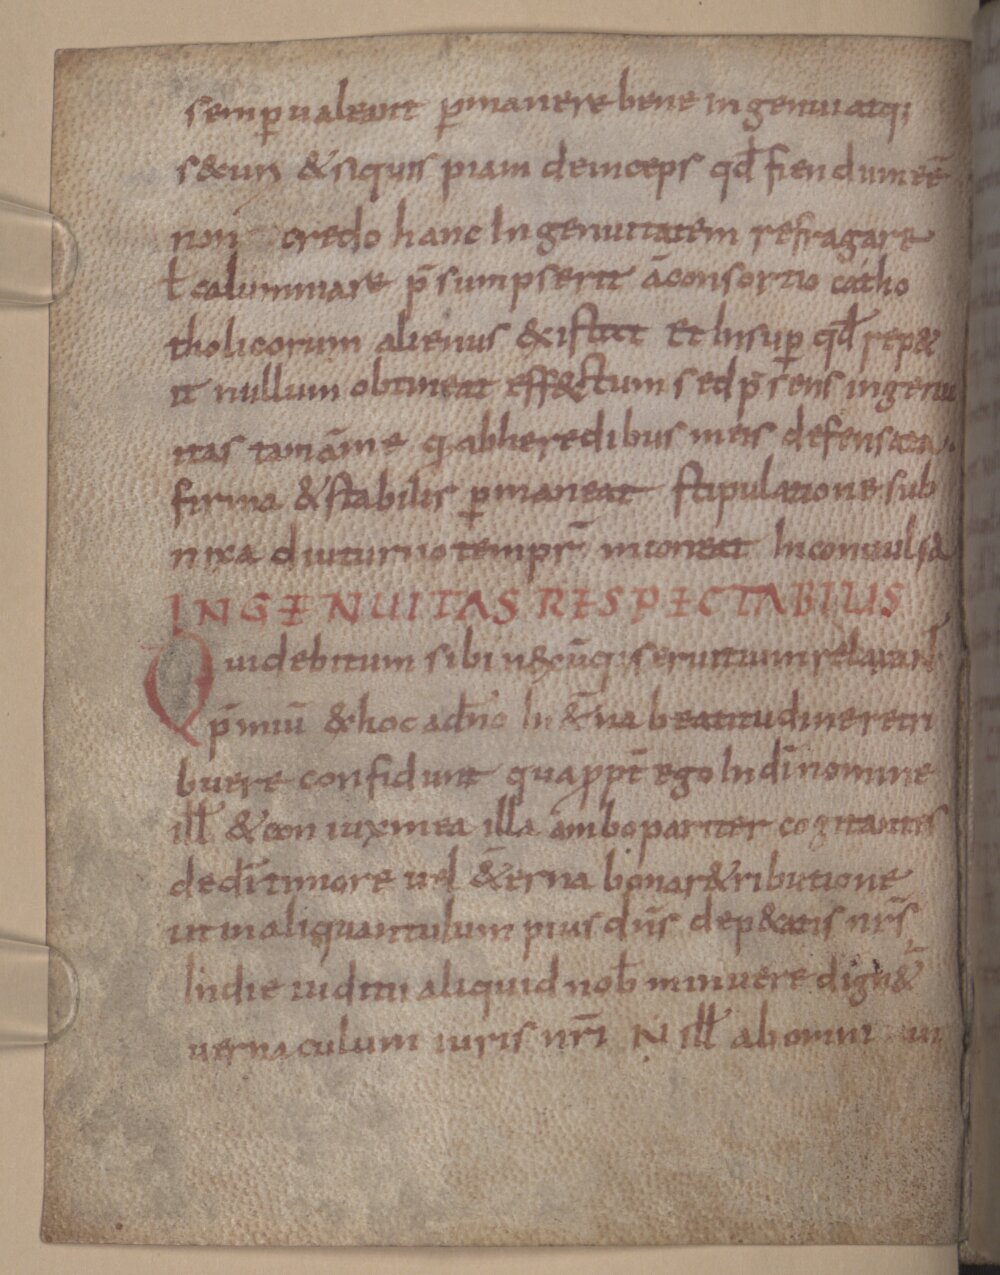 semp̱ ualeant p̱manere bene ingenui atq;
s&curi &siquis piam deinceps qđ fiendum eē
non credo hanc Ingenuitatem refragare
ł calumniare p̄sumpserit āconsortio catho
tholicorum alienus &istat Et Insup̱ qđ rep&
it nullum obtineat eff&ctum sed p̄sens ingenu
itas tam āme q̄ abheredibus meis defensata
firma &stabilis p̱maneat stipulatione sub
nixa diuturno tempr̄ Inconuulsa
INGENUITAS RESPECTABILIS
Qui debitum sibi n&cūq; seruitium relaxat
p̄miū &hoc adn̄o In &̄na beatitudine retri
buere confidunt quapropt̄ ego Indī nomine
ilł &coniux mea illa ambo pariter cogitantes
dedī timore uel &̄erna bona r&ributione
ut in aliquantulum pius dn̄s dep&atis nr̄s
Indie iuditii aliquid nob̄ minuere dign&̄
uernaculum iuris nr̄i N ilł ab omni ui